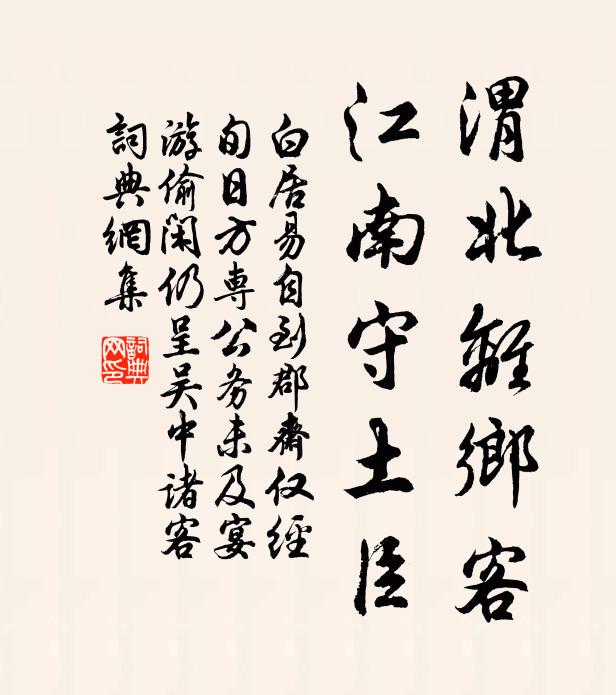 渭北離鄉客
江南守土臣
白居易自到郡齋仅經
旬日方專公务未及宴
游偷闲仍呈吴中诸客
詞典網集
詞典网印